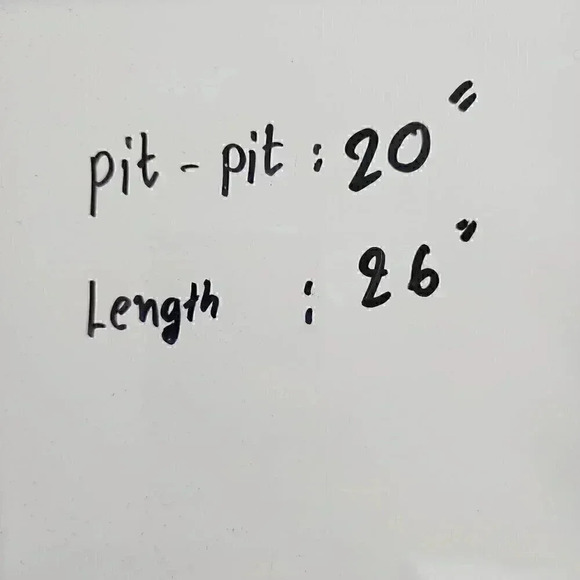 pit - pit : 20"
Length : 26"